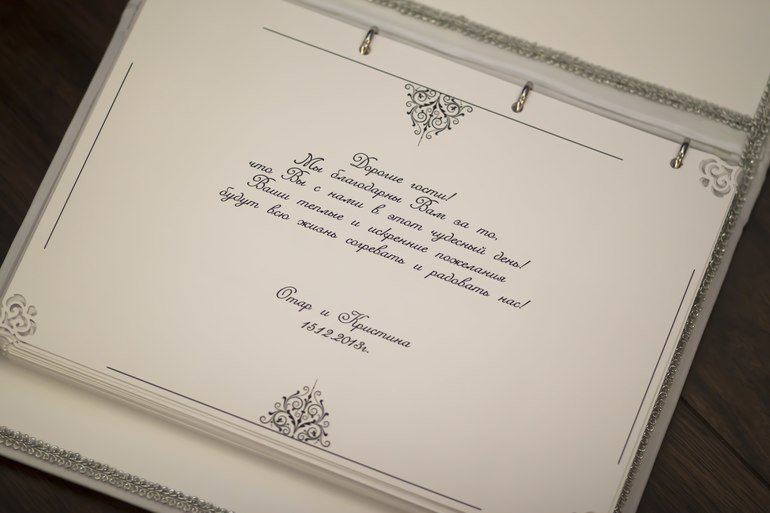 Дорогие гости!
Мы благодарны Вам за то,
что Вы с нами в этот чудесный день!
Ваши теплые и искренние пожелания
будут всю жизнь согревать и радовать нас!
Отар и Кристина
15.12.2013г.